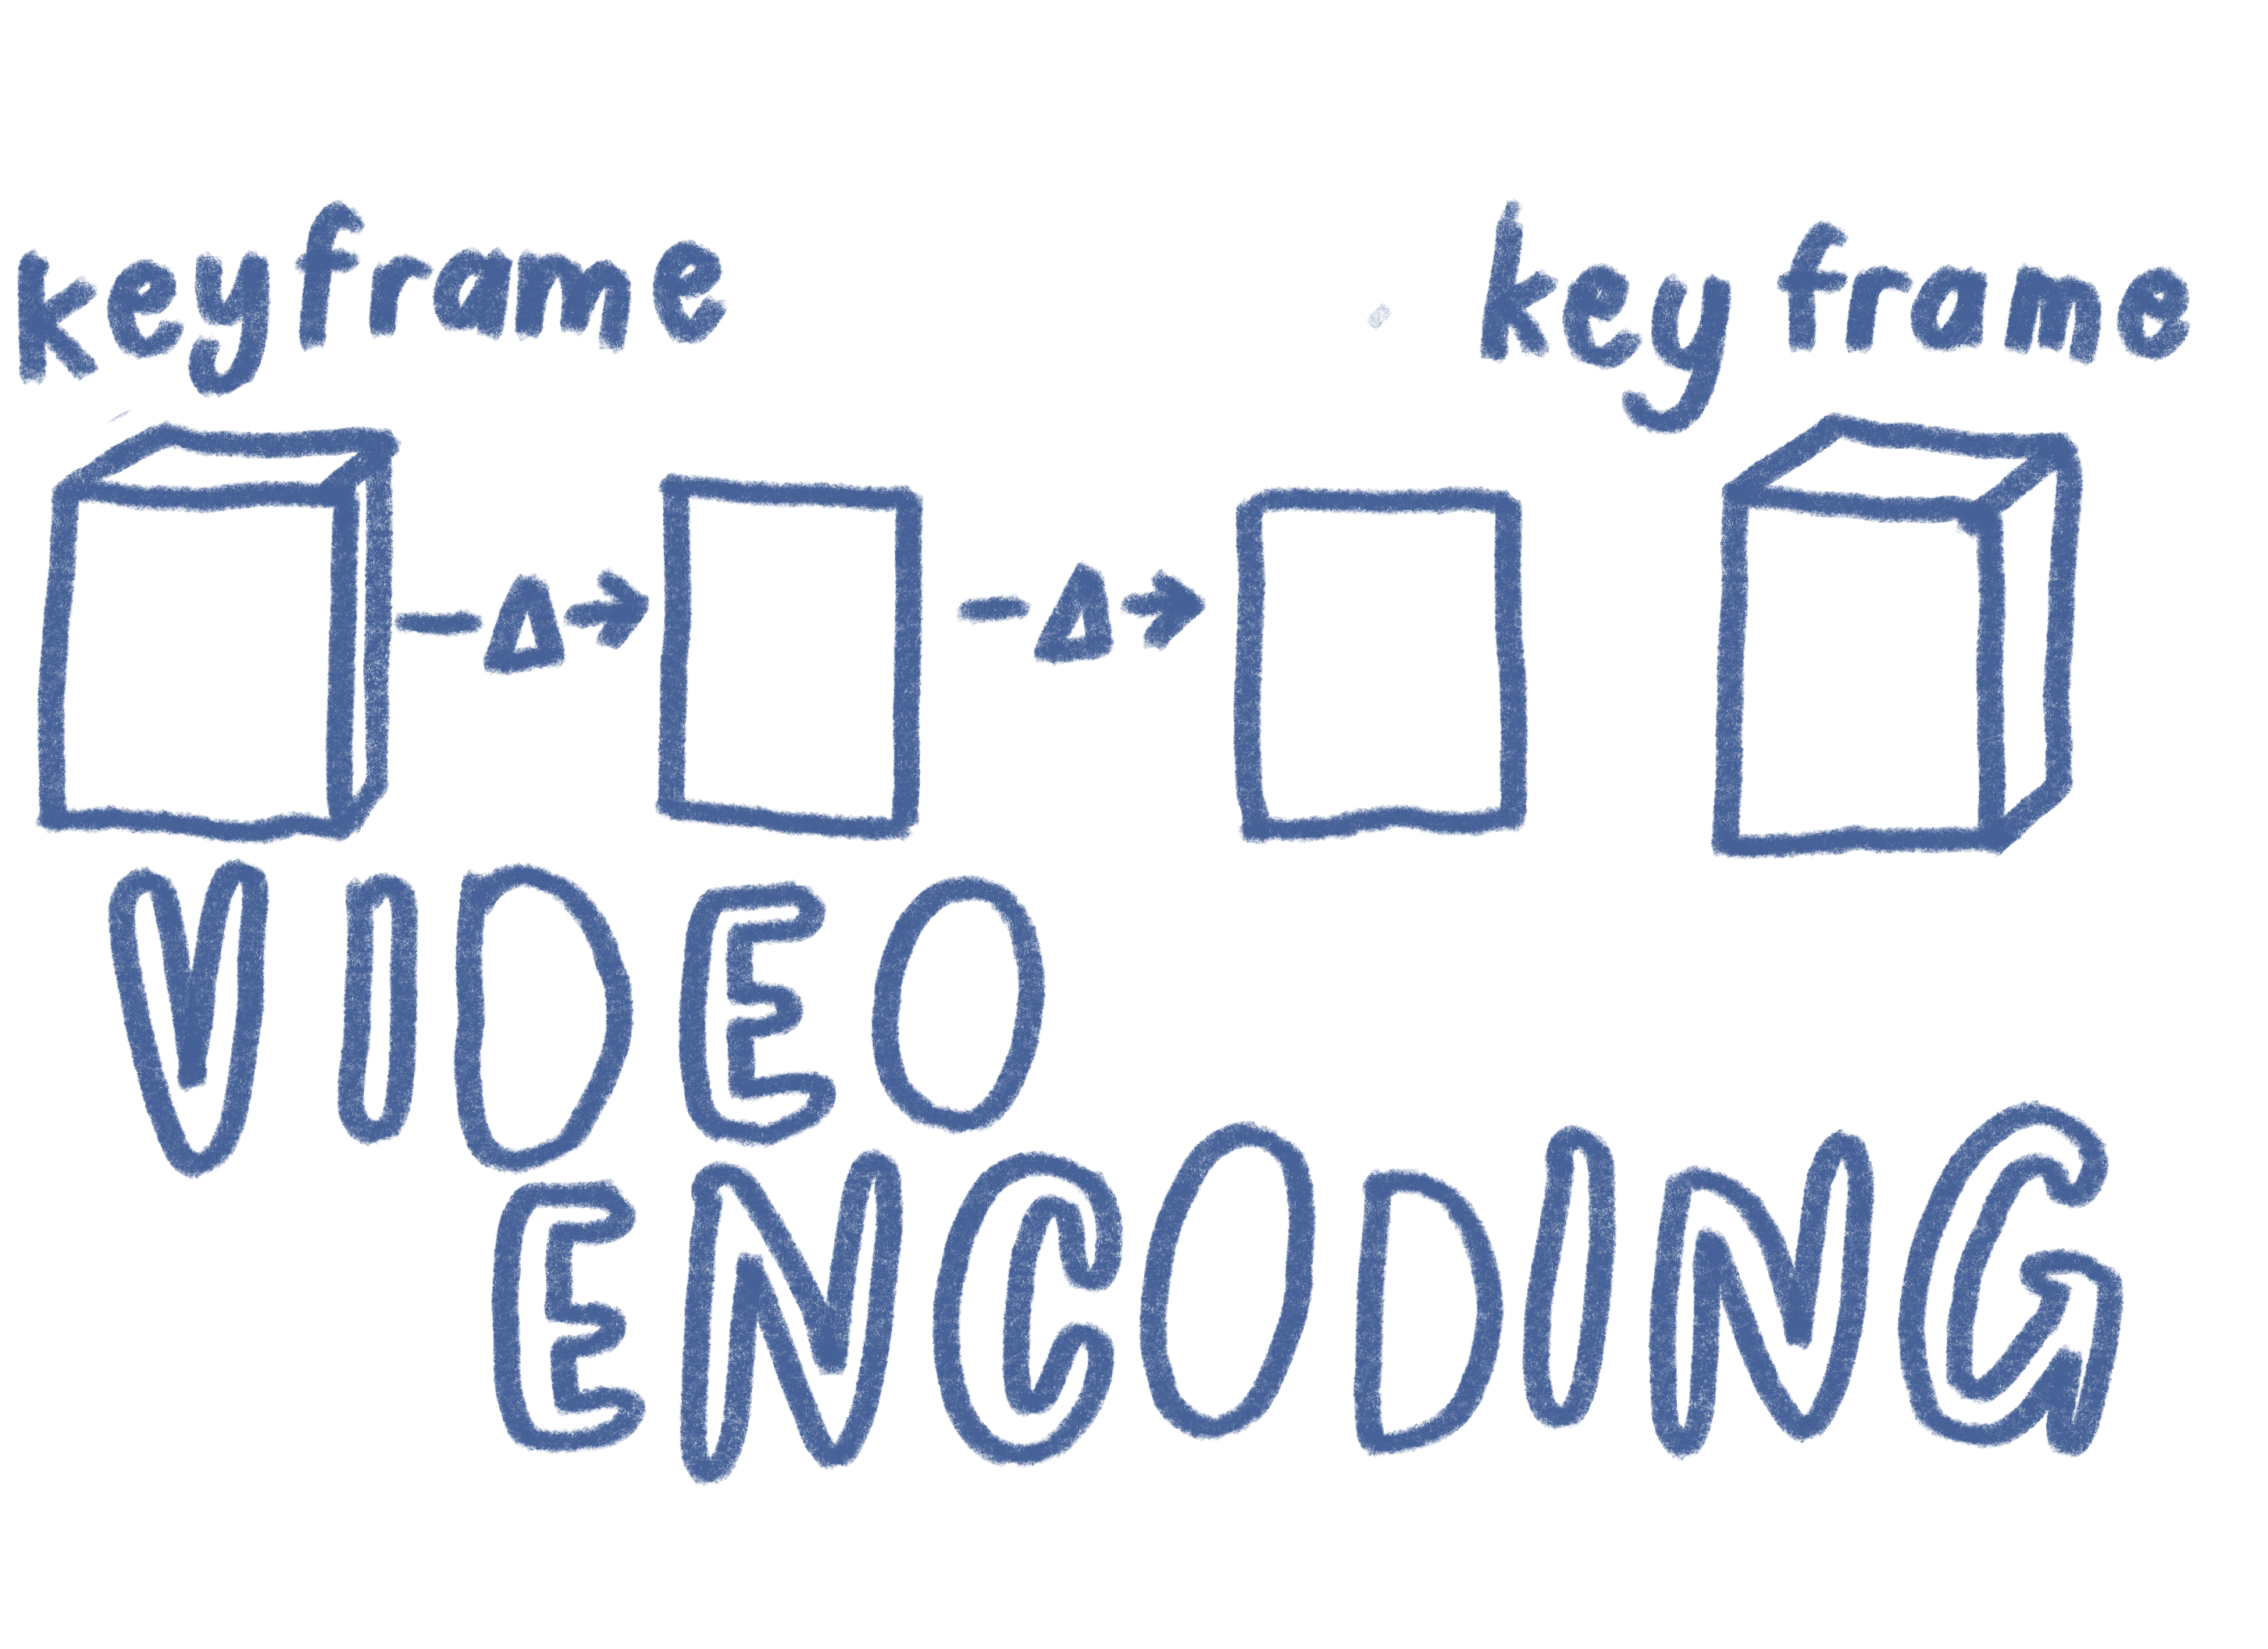 keyframe key frame
-Δ→ -Δ→
VIDEO
ENCODING